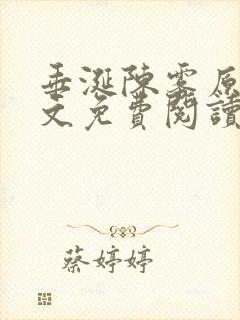 垂涎陳雾原
文免費閱讀
蔡婷婷